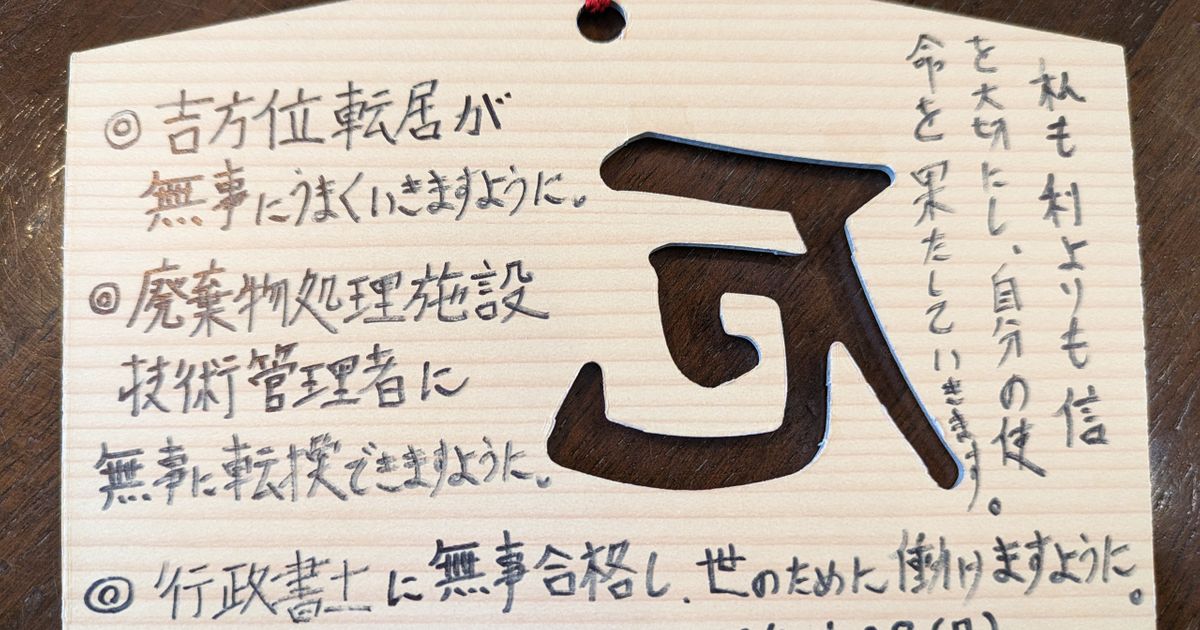 私も利よりも信
を大切にし、自分の使
命を果たしていきます。
◎吉方位転居が
無事にうまくいきますように。
◎廃棄物処理施設
技術管理者に
無事に転換できますように。
◎行政書士に無事合格し、世のために働けますように。